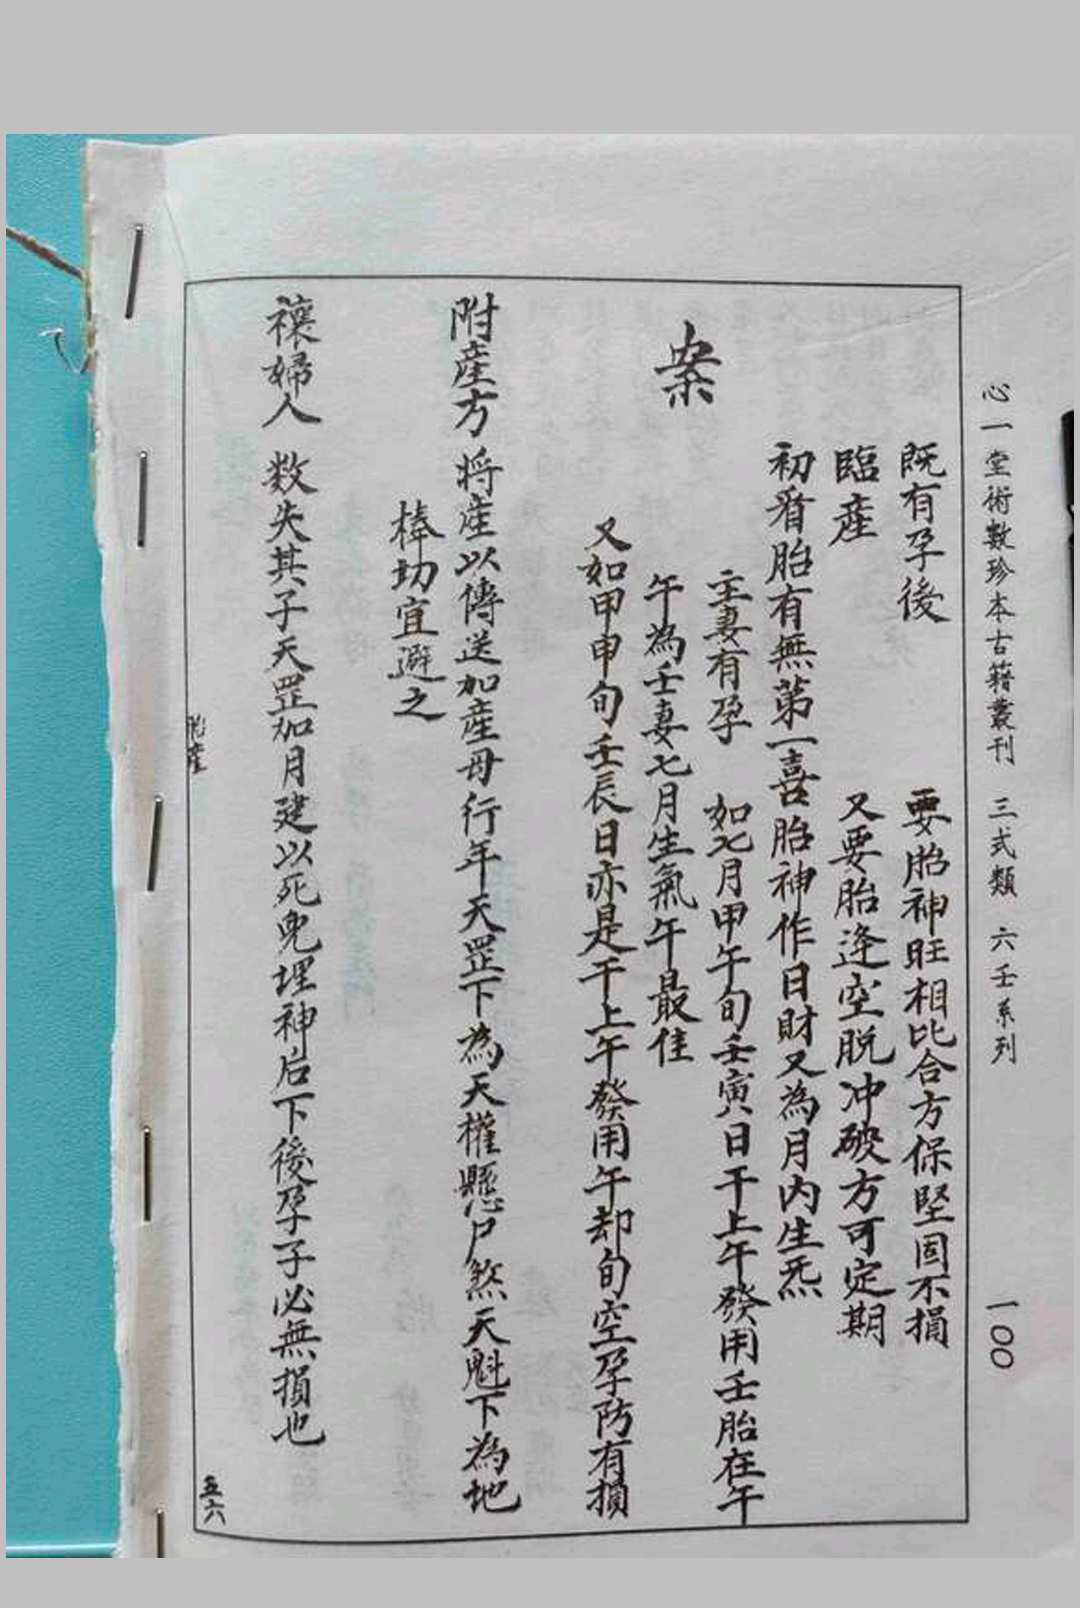 心一堂術數珍本古籍叢刊 三式類 六壬系列 一〇〇
既有孕後 要胎神旺相比合方保堅固不損
臨產 又要胎逢空脱冲破方可定期
初看胎有無第一喜胎神作日財又為月内生炁
主妻有孕 如七月甲午旬壬寅日干上午發用壬胎在午
案
午為壬妻七月生氣午最佳
又如甲申旬壬辰日亦是干上午發用午却旬空孕防有損
附產方 将產以傳送加產母行年天罡下為天權懸尸煞天魁下為地
棒切宜避之
禳婦人 数失其子天罡加月建以死鬼埋神后下後孕子必無損也
胎產
五六